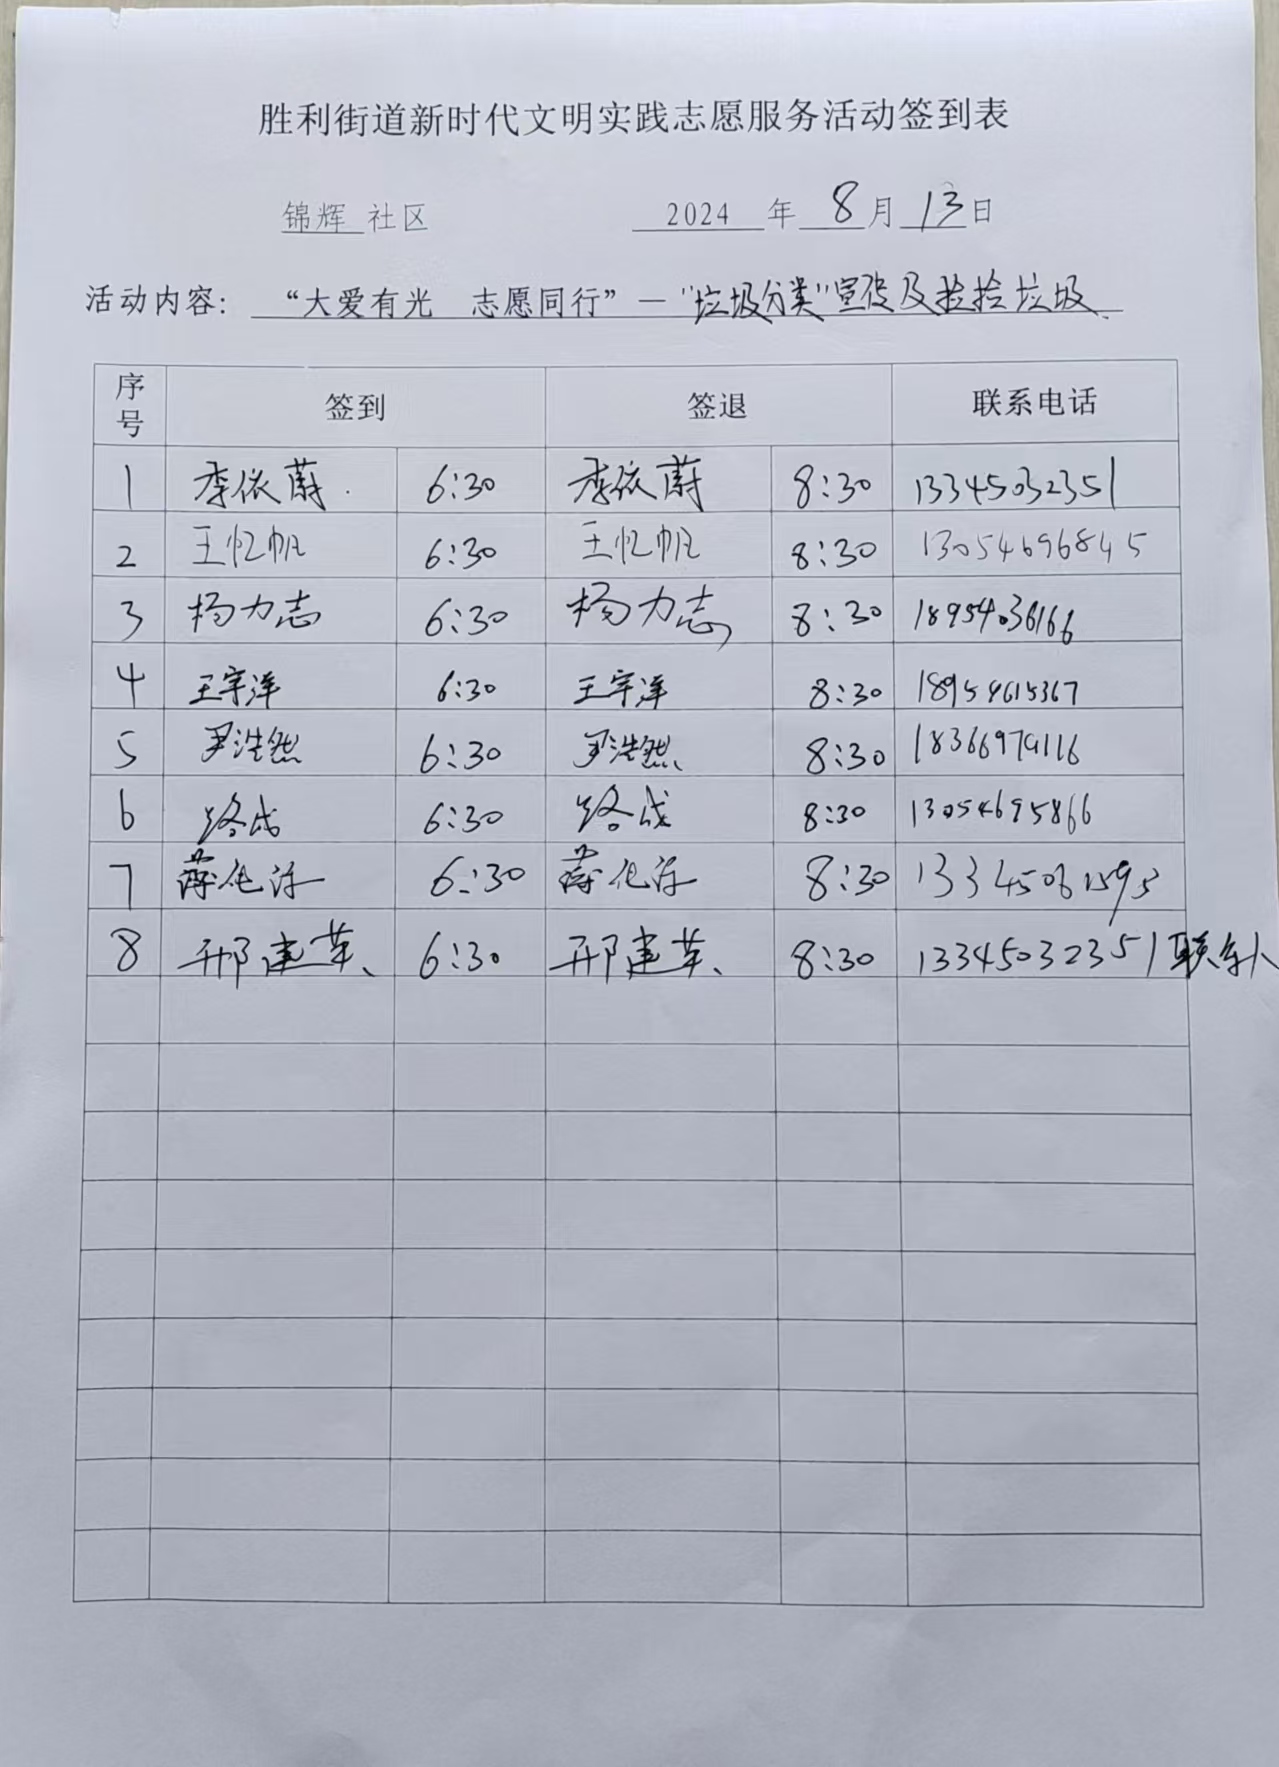 胜利街道新时代文明实践志愿服务活动签到表
锦辉 社区 2024 年 8 月 13 日
活动内容： “大爱有光 志愿同行”—“垃圾分类”宣传及捡拾垃圾.
序号 签到 签退 联系电话
1 李依蔚 6:30 李依蔚 8:30 13345032351
2 王忆帆 6:30 王忆帆 8:30 13054696845
3 杨力志 6:30 杨力志 8:30 18954036166
4 王宇洋 6:30 王宇洋 8:30 18954615367
5 尹浩然 6:30 尹浩然 8:30
6 路成 6:30 路成 8:30 13054695866
7 6:30 8:30
8 邢建苹 6:30 邢建苹 8:30 13345032351 联系人